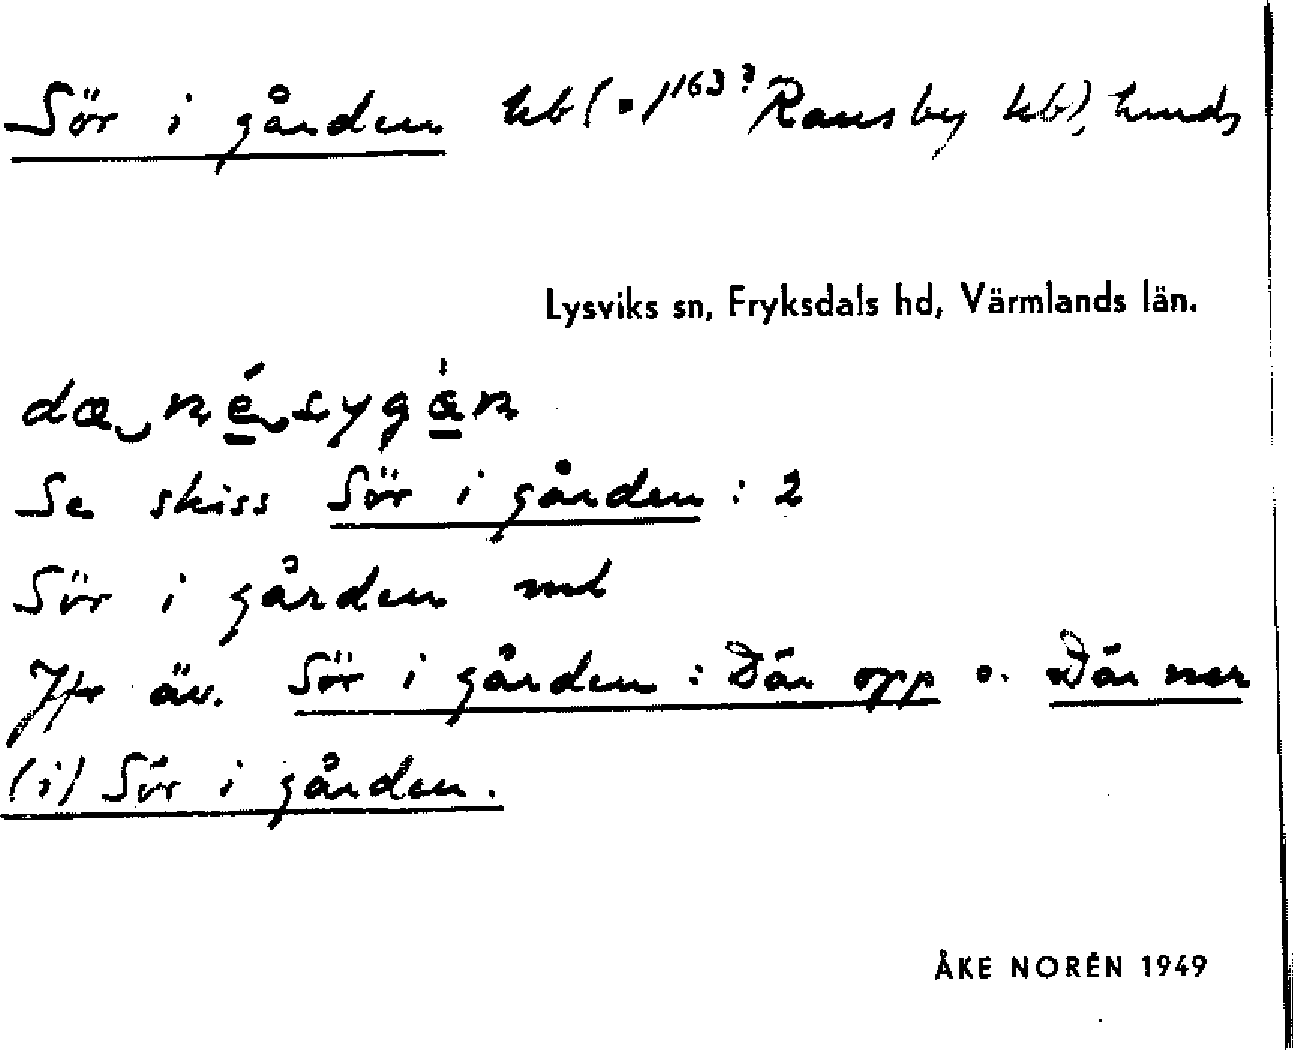 Sör i gården hb (=1/163? Ransby hb), hmds
Lysviks sn, Fryksdals hd, Värmlands län.
Se skiss Sör i gården : 2
Sör i gården md
Jfr äv. Sör i gården : Där opp o. Där ner
(i) Sör i gården.
ÅKE NORÉN 1949